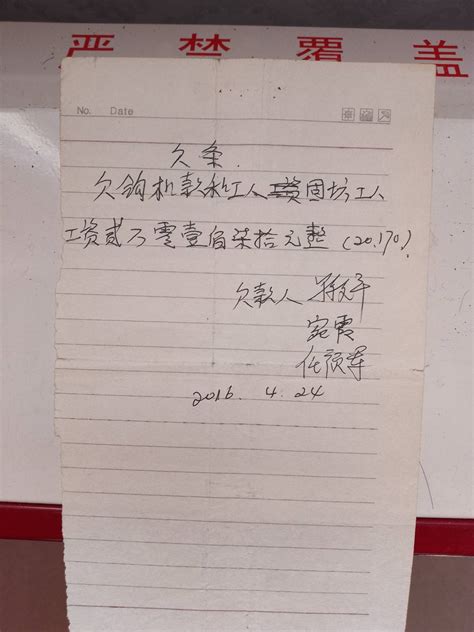 严禁覆盖
No. Date
欠条.
欠钩机款和工人工资围坊工人
工资贰万零壹佰柒拾元整 (20.170)
欠款人
宛霞
2016. 4. 24